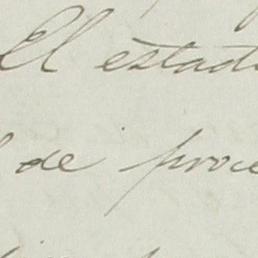 El estad
de proce